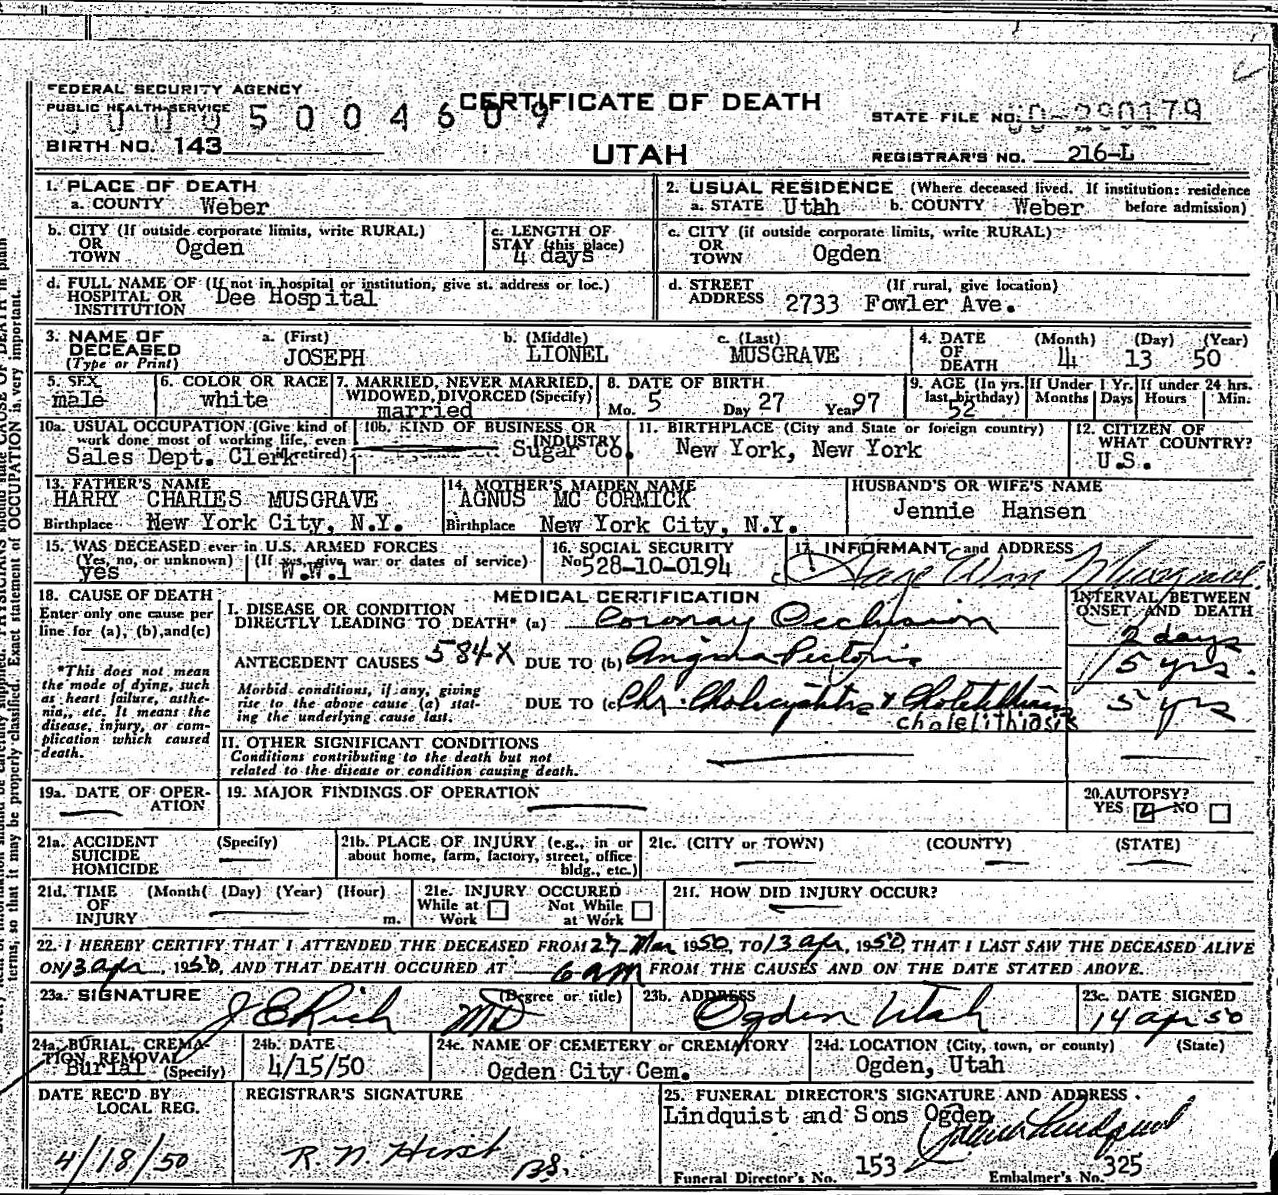 FEDERAL SECURITY AGENCY
PUBLIC HEALTH SERVICE
CERTIFICATE OF DEATH
5004609
STATE FILE NO.
BIRTH NO. 143
UTAH
REGISTRAR'S NO. 216-L
1. PLACE OF DEATH
a. COUNTY Weber
2. USUAL RESIDENCE (Where deceased lived. If institution: residence before admission)
a. STATE Utbh b. COUNTY Weber
b. CITY (If outside corporate limits, write RURAL) OR TOWN Ogden
c. LENGTH OF STAY (this place) 4 days
c. CITY (if outside corporate limits, write RURAL) OR TOWN Ogden
d. FULL NAME OF (If not in hospital or institution, give st. address or loc.) HOSPITAL OR INSTITUTION Dee Hospital
d. STREET ADDRESS (If rural, give location) 2733 Fowler Ave.
3. NAME OF DECEASED (Type or Print)
a. (First) JOSEPH
b. (Middle) LIONEL
c. (Last) MUSGRAVE
4. DATE OF DEATH (Month) (Day) (Year) 4 13 50
5. SEX male
6. COLOR OR RACE white
7. MARRIED, NEVER MARRIED, WIDOWED, DIVORCED (Specify) married
8. DATE OF BIRTH Mo. 5 Day 27 Year 97
9. AGE (In yrs. last birthday) 52
If Under 1 Yr. Months Days
If under 24 hrs. Hours Min.
10a. USUAL OCCUPATION (Give kind of work done most of working life, even if retired) Sales Dept. Clerk
10b. KIND OF BUSINESS OR INDUSTRY Sugar Co.
11. BIRTHPLACE (City and State or foreign country) New York, New York
12. CITIZEN OF WHAT COUNTRY? U.S.
13. FATHER'S NAME HARRY CHARLES MUSGRAVE
Birthplace New York City, N.Y.
14. MOTHER'S MAIDEN NAME AGNUS MC CORMICK
Birthplace New York City, N.Y.
HUSBAND'S OR WIFE'S NAME
Jennie Hansen
15. WAS DECEASED ever in U.S. ARMED FORCES
(Yes, no, or unknown) yes
(If yes, give war or dates of service) W.W.1
16. SOCIAL SECURITY No 528-10-0194
17. INFORMANT and ADDRESS
18. CAUSE OF DEATH
Enter only one cause per line for (a), (b), and (c)
*This does not mean the mode of dying, such as heart failure, asthenia, etc. It means the disease, injury, or complication which caused death.
MEDICAL CERTIFICATION
INTERVAL BETWEEN ONSET AND DEATH
I. DISEASE OR CONDITION DIRECTLY LEADING TO DEATH* (a) Coronary Occlusion 2 days
ANTECEDENT CAUSES 584X DUE TO (b) Angina Pectoris
yrs.
Morbid conditions, if any, giving rise to the above cause (a) stating the underlying cause last.
DUE TO (c) Chr. Cholecystitis & Cholelithiasis 5 yrs
cholelithiasis
II. OTHER SIGNIFICANT CONDITIONS
Conditions contributing to the death but not related to the disease or condition causing death.
19a. DATE OF OPERATION
19. MAJOR FINDINGS OF OPERATION
20. AUTOPSY? YES NO
21a. ACCIDENT SUICIDE HOMICIDE (Specify)
21b. PLACE OF INJURY (e.g., in or about home, farm, factory, street, office bldg., etc.)
21c. (CITY or TOWN) (COUNTY) (STATE)
21d. TIME OF INJURY (Month( (Day) (Year) (Hour) m.
21e. INJURY OCCURED
While at Work Not While at Work
21f. HOW DID INJURY OCCUR?
22. I HEREBY CERTIFY THAT I ATTENDED THE DECEASED FROM 27 Mar 1950, TO 13 apr, 1950, THAT I LAST SAW THE DECEASED ALIVE
ON 13 apr, 1950, AND THAT DEATH OCCURED AT 6 am FROM THE CAUSES AND ON THE DATE STATED ABOVE.
23a. SIGNATURE J E Rich MD (Degree or title)
23b. ADDRESS Ogden Utah
23c. DATE SIGNED 14 apr 50
24a. BURIAL, CREMATION, REMOVAL (Specify) Burial
24b. DATE 4/15/50
24c. NAME OF CEMETERY or CREMATORY Ogden City Cem.
24d. LOCATION (City, town, or county) (State) Ogden, Utah
DATE REC'D BY LOCAL REG.
4/18/50
REGISTRAR'S SIGNATURE
R. N. Hirst
25. FUNERAL DIRECTOR'S SIGNATURE AND ADDRESS.
Lindquist and Sons Ogden
Funeral Director's No. 153
Embalmer's No. 325